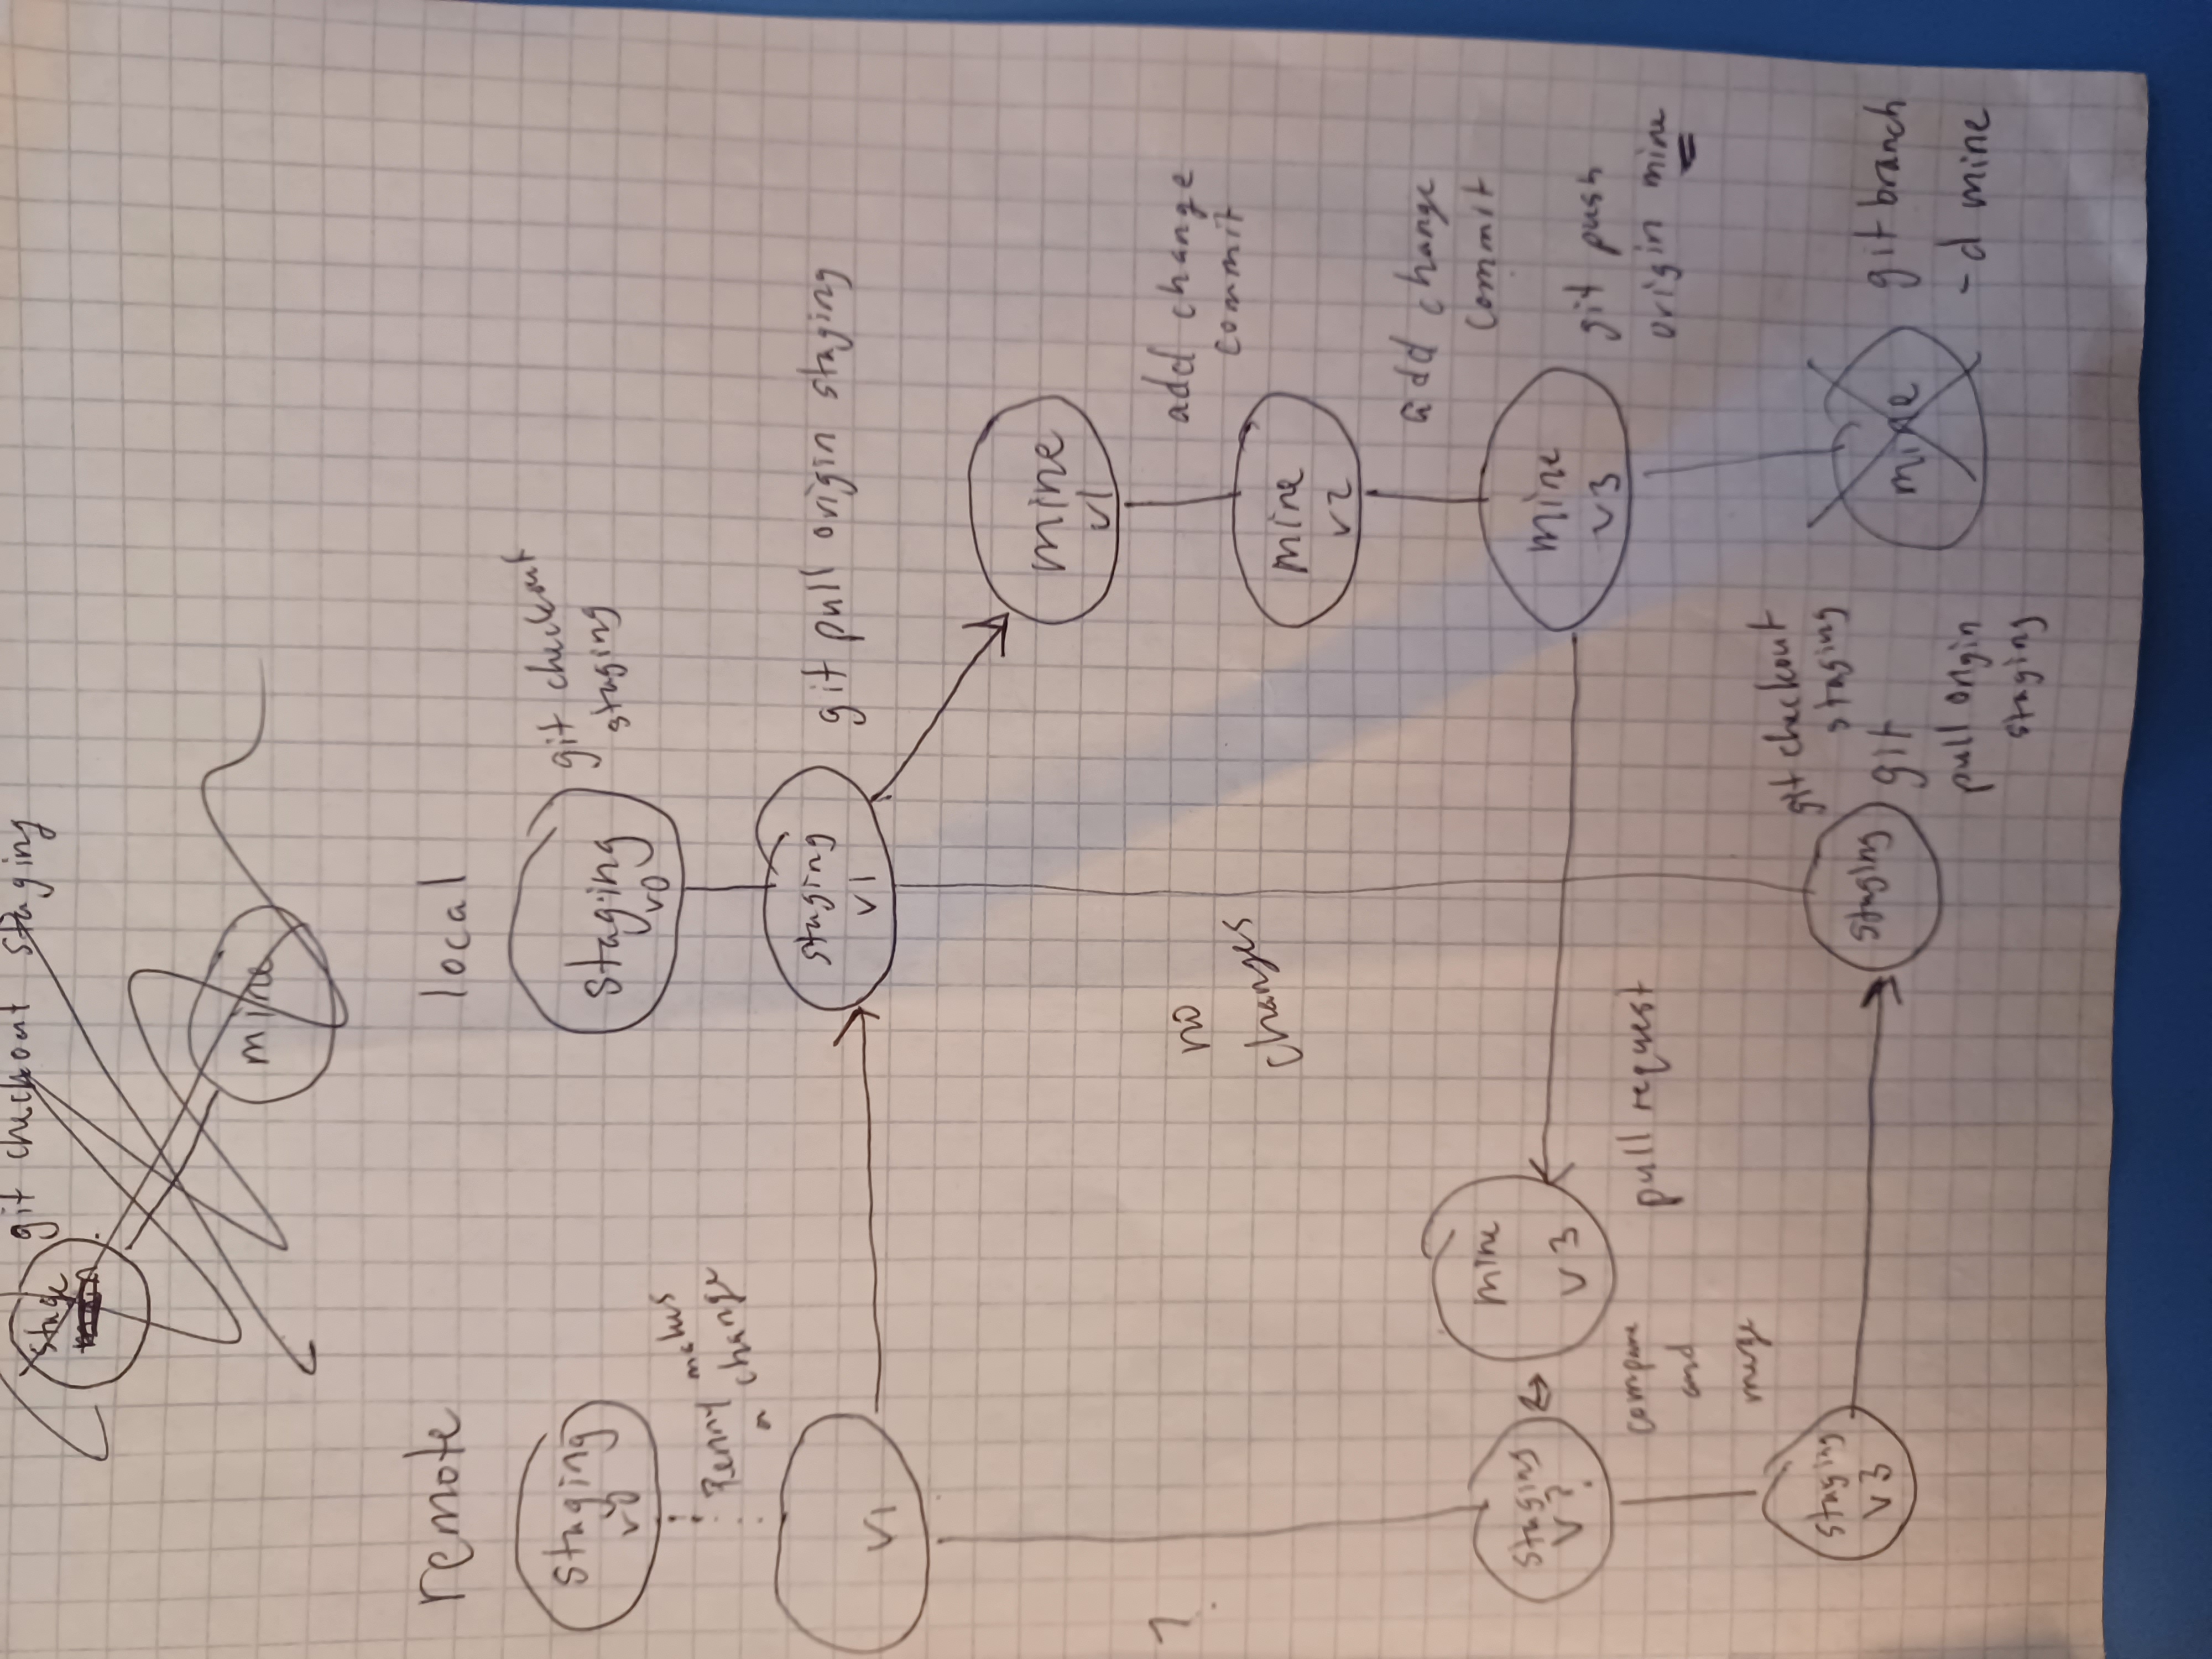 git checkout staging
stage
main
mine
remote
local
staging
v0
staging
v0
git checkout
staging
Penny makes
a change
v1
staging
v1
git pull origin staging
mine
v1
?
no
changes
add change
commit
mine
v2
add change
commit
staging
v?
mine
v3
mine
v3
git push
origin mine
compare
and
merge
pull request
staging
v3
staging
git checkout
staging
git
pull origin
staging
mine
git branch
-d mine